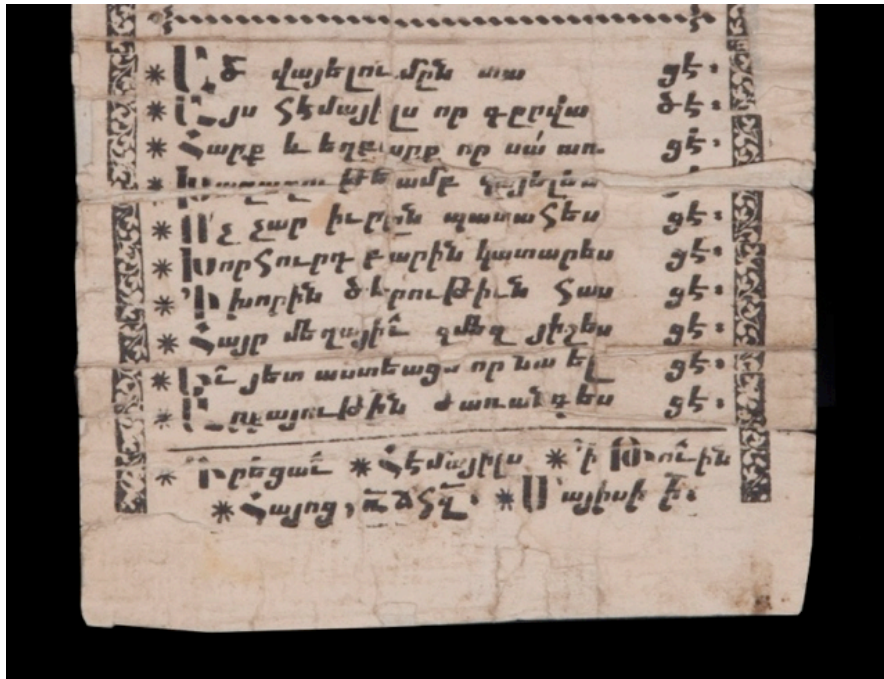 * Ած վայելումըն տա ցէ։
* Այս հէմայէլս որ գըրվա ծէ։
* Հարք և եղբարք որ սա առ- ցէ։
* Խաղաղութեամբ վայելես ցէ։
* Ո՛չ չար իւրըն պատահես ցէ։
* Խորհուրդ բարին կատարես ցէ։
* Ի խորին ծերութիւն հաս ցէ։
* Հայր մեղային զմեզ յիշես ցէ։
* Եւ յետ աստեացս որ նա ել ցէ։
* Արքայութին ժառանգես ցէ։
* Գրեցաւ * Հէմայիլս * ՚ի Թուին
* Հայոց, ռճհզ. * Մայիսի ի։